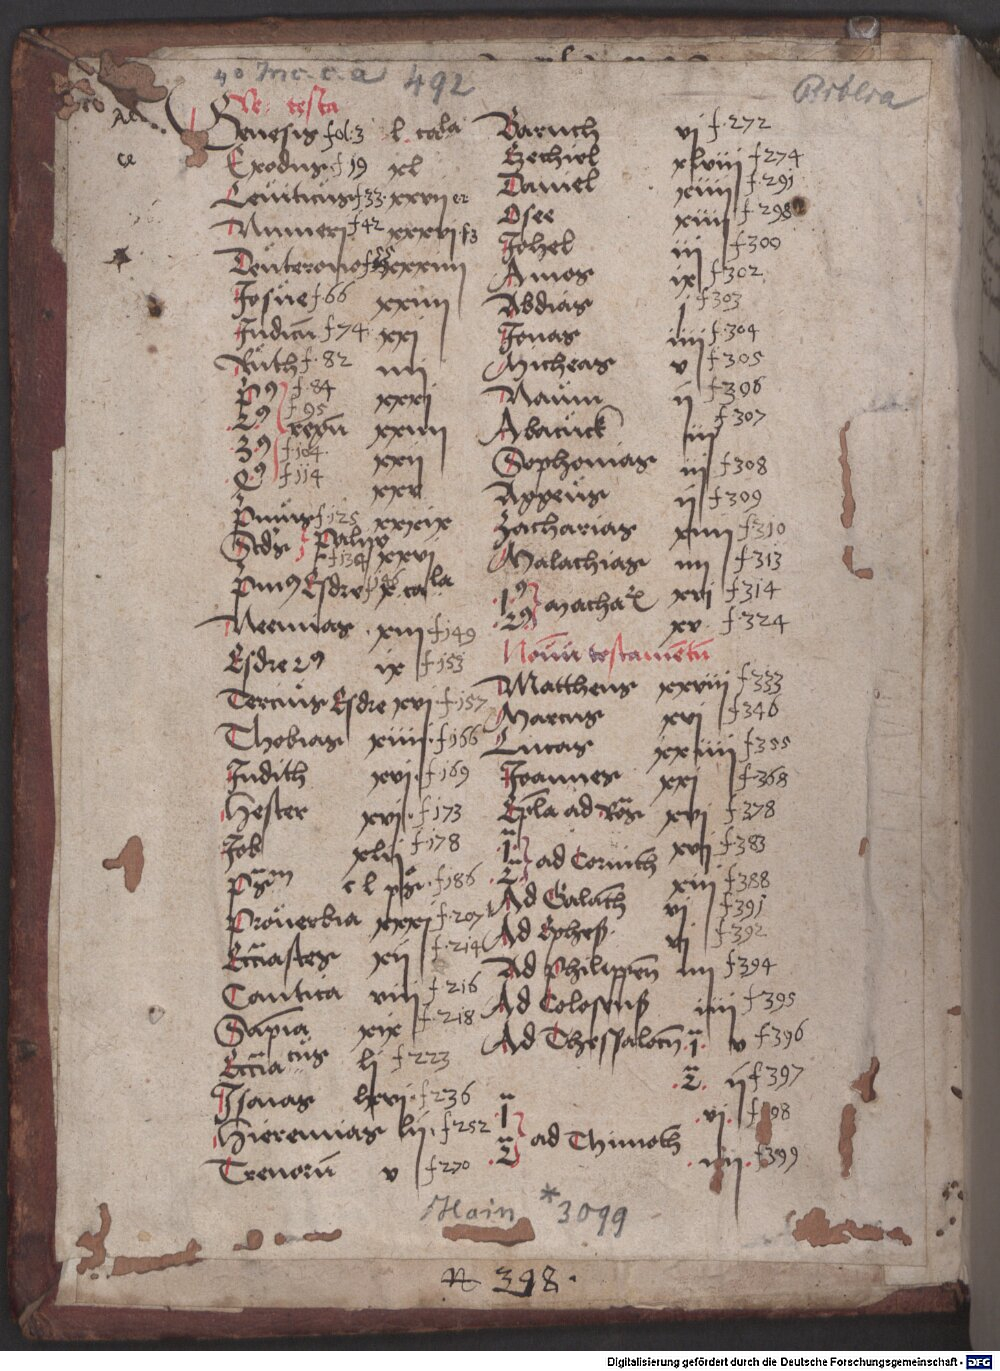 4° Inc. c. a. 492
Biblia
Ve. testa
Genesis fol. 3 l. cala
Exodus f 19 xl
Leuiticus f 33 xxvii
Numeri f 42 xxxvi
Deuterono f 55 xxxiiii
Josue f 66 xxiiii
Judicu f 74 xxi
Ruth f. 82 iiii
P9 f. 84 xxxi
29 f. 95 regu xxiiii
39 f. 104 xxii
f. 114 xxv
Primus f 125 xxxix
Scds Palip f 134 xxxvi
Prim9 Esdre f 146 x. cala
Neemias. xiii f 149
Esdre 29 ix f 153
Tercius Esdre xvi. f. 157
Thobias xiiii. f 166
Judith xvi. f 169
Hester xvi. f 173
Job xlii f 178
Psm c l ps. f 186
Prouerbia xxxi f. 207
Eccastes xii f. 214
Cantica viii f 216
Sapia xix f. 218
Eccia cus li f 223
Isaias lxvi. f 236
Hieremias lii. f. 252
Trenoru v f 270
Baruch vi f. 272
Ezechiel xlviii f 274
Daniel xiiii f. 291
Osee xiiii f. 298
Johel iii f 300
Amos ix f 302
Abdias i f 303
Jonas iiii f. 304
Micheas v f 305
Naum ii f 306
Abacuck iii f 307
Sophonias iii f 308
Aggeus ii f 309
Zacharias xiiii f 310
Malachias iiii f 313
.19 xvi f 314
29 macha xv. f 324
Nouu testametu
Mattheus xxviii f 333
Marcus xvi f 346
Lucas xxiiii f 355
Joannes xxi f. 368
Epla ad Ros xvi f 378
1 xvi f. 383
2 ad Corinth xiii f 388
Ad Galath vi f 391
Ad Ephes. vi f 392
Ad Philippen iiii f 394
Ad Colosens iiii f 395
Ad Thessalocn .1. v f 396
.2. ii f 397
1 .vi. f 398
.2. ad Thimoth .iiii. f 399
Hain *3099
N 398.
Digitalisierung gefördert durch die Deutsche Forschungsgemeinschaft - DFG